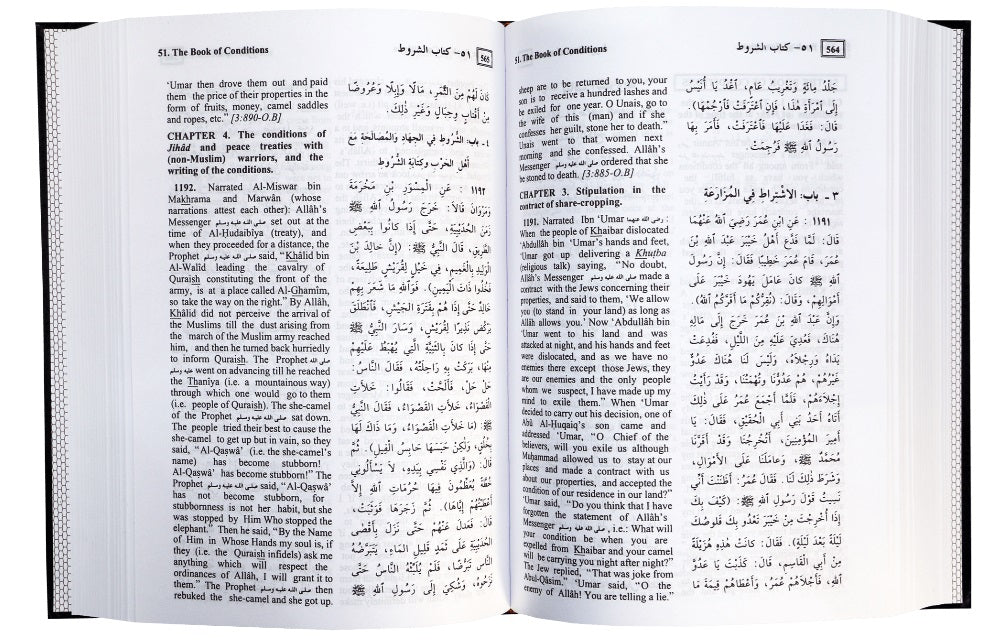 51. The Book of Conditions
٥١- كتاب الشروط
564
sheep are to be returned to you, your
son is to receive a hundred lashes and
be exiled for one year. O Unais, go to
the wife of this (man) and if she
confesses her guilt, stone her to death."
Unais went to that women next
morning and she confessed. Allâh's
Messenger صلى الله عليه وسلم ordered that she
be stoned to death. [3:885-O.B]
CHAPTER 3. Stipulation in the
contract of share-cropping.
1191. Narrated Ibn 'Umar رضي الله عنهما :
When the people of Khaibar dislocated
'Abdullâh bin 'Umar's hands and feet,
'Umar got up delivering a Khutba
(religious talk) saying, "No doubt,
Allâh's Messenger صلى الله عليه وسلم made a
contract with the Jews concerning their
properties, and said to them, 'We allow
you (to stand in your land) as long as
Allâh allows you.' Now 'Abdullâh bin
'Umar went to his land and was
attacked at night, and his hands and feet
were dislocated, and as we have no
enemies there except those Jews, they
are our enemies and the only people
whom we suspect, I have made up my
mind to exile them." When 'Umar
decided to carry out his decision, one of
Abû Al-Huqaiq's son came and
addressed 'Umar, "O Chief of the
believers, will you exile us although
Muhammad allowed us to stay at our
places and made a contract with us
about our properties, and accepted the
condition of our residence in our land?"
'Umar said, "Do you think that I have
forgotten the statement of Allâh's
Messenger صلى الله عليه وسلم, i.e.: What will
your condition be when you are
expelled from Khaibar and your camel
will be carrying you night after night?"
The Jew replied, "That was joke from
Abul-Qâsim." 'Umar said, "O the
enemy of Allâh! You are telling a lie."
جَلْدُ مِائَةٍ وَتَغْرِيبُ عَامٍ، اغْدُ يَا أُنَيْسُ
إِلَى امْرَأَةِ هٰذَا، فَإِنِ اعْتَرَفَتْ فَارْجُمْهَا).
قَالَ: فَغَدَا عَلَيْهَا فَاعْتَرَفَتْ، فَأَمَرَ بِهَا
رَسُولُ اللهِ ﷺ فَرُجِمَتْ.
٣ - باب: الاشْتِرَاط فِي المُزَارَعَة
١١٩١ : عَنِ ابْنِ عُمَرَ رَضِيَ اللهُ عَنْهُمَا
قَالَ: لَمَّا فَدَعَ أَهْلُ خَيْبَرَ عَبْدَ اللهِ بْنَ
عُمَرَ، قَامَ عُمَرُ خَطِيبًا فَقَالَ: إِنَّ رَسُولَ
اللهِ ﷺ كَانَ عَامَلَ يَهُودَ خَيْبَرَ عَلَى
أَمْوَالِهِمْ، وَقَالَ: (نُقِرُّكُمْ مَا أَقَرَّكُمُ اللهُ).
وَإِنَّ عَبْدَ اللهِ بْنَ عُمَرَ خَرَجَ إِلَى مَالِهِ
هُنَاكَ، فَعُدِيَ عَلَيْهِ مِنَ اللَّيْلِ، فَفُدِعَتْ
يَدَاهُ وَرِجْلَاهُ، وَلَيْسَ لَنَا هُنَاكَ عَدُوٌّ
غَيْرُهُمْ، هُمْ عَدُوُّنَا وَتُهَمَتُنَا، وَقَدْ رَأَيْتُ
إِجْلَاءَهُمْ، فَلَمَّا أَجْمَعَ عُمَرُ عَلَى ذٰلِكَ
أَتَاهُ أَحَدُ بَنِي أَبِي الْحُقَيْقِ، فَقَالَ: يَا
أَمِيرَ المُؤْمِنِينَ، أَتُخْرِجُنَا وَقَدْ أَقَرَّنَا
مُحَمَّدٌ ﷺ، وَعَامَلَنَا عَلَى الأَمْوَالِ،
وَشَرَطَ ذٰلِكَ لَنَا. فَقَالَ عُمَرُ: أَظَنَنْتَ أَنِّي
نَسِيتُ قَوْلَ رَسُولِ اللهِ ﷺ: (كَيْفَ بِكَ
إِذَا أُخْرِجْتَ مِنْ خَيْبَرَ تَعْدُو بِكَ قَلُوصُكَ
لَيْلَةً بَعْدَ لَيْلَةٍ). فَقَالَ: كَانَتْ هٰذِهِ هُزَيْلَةً
مِنْ أَبِي القَاسِمِ، قَالَ: كَذَبْتَ يَا عَدُوَّ
اللهِ، فَأَجْلَاهُمْ عُمَرُ، وَأَعْطَاهُمْ قِيمَةَ مَا
51. The Book of Conditions
٥١- كتاب الشروط
565
'Umar then drove them out and paid
them the price of their properties in the
form of fruits, money, camel saddles
and ropes, etc." [3:890-O.B]
CHAPTER 4. The conditions of
Jihâd and peace treaties with
(non-Muslim) warriors, and the
writing of the conditions.
1192. Narrated Al-Miswar bin
Makhrama and Marwân (whose
narrations attest each other): Allâh's
Messenger صلى الله عليه وسلم set out at the
time of Al-Hudaibîya (treaty), and
when they proceeded for a distance, the
Prophet صلى الله عليه وسلم said, "Khâlid bin
Al-Walîd leading the cavalry of
Quraish constituting the front of the
army, is at a place called Al-Ghamîm,
so take the way on the right." By Allâh,
Khâlid did not perceive the arrival of
the Muslims till the dust arising from
the march of the Muslim army reached
him, and then he turned back hurriedly
to inform Quraish. The Prophet صلى الله
عليه وسلم went on advancing till he reached
the Thaniya (i.e. a mountainous way)
through which one would go to them
(i.e. people of Quraish). The she-camel
of the Prophet صلى الله عليه وسلم sat down.
The people tried their best to cause the
she-camel to get up but in vain, so they
said, "Al-Qaswâ' (i.e. the she-camel's
name) has become stubborn!
Al-Qaswâ' has become stubborn!" The
Prophet صلى الله عليه وسلم said, "Al-Qaswâ'
has not become stubborn, for
stubbornness is not her habit, but she
was stopped by Him Who stopped the
elephant." Then he said, "By the Name
of Him in Whose Hands my soul is, if
they (i.e. the Quraish infidels) ask me
anything which will respect the
ordinances of Allâh, I will grant it to
them." The Prophet صلى الله عليه وسلم then
rebuked the she-camel and she got up.
كَانَ لَهُمْ مِنَ الثَّمَرِ، مَالًا وَإِبِلًا وَعُرُوضًا
مِنْ أَقْتَابٍ وَحِبَالٍ وَغَيْرِ ذٰلِكَ.
٤- باب: الشُّرُوط فِي الجِهَادِ وَالمُصَالَحَة مَعَ
أَهْلِ الحَرْبِ وكتابة الشُّرُوط
١١٩٢ : عَنِ الْمِسْوَرِ بْنِ مَخْرَمَةَ
وَمَرْوَانَ قَالَا: خَرَجَ رَسُولُ اللهِ ﷺ
زَمَنَ الحُدَيْبِيَةِ، حَتَّى إِذَا كَانُوا بِبَعْضِ
الطَّرِيقِ، قَالَ النَّبِيُّ ﷺ: (إِنَّ خَالِدَ بْنَ
الْوَلِيدِ بِالْغَمِيمِ، فِي خَيْلٍ لِقُرَيْشٍ طَلِيعَةً،
فَخُذُوا ذَاتَ الْيَمِينِ). فَوَاللهِ مَا شَعَرَ بِهِمْ
خَالِدٌ حَتَّى إِذَا هُمْ بِقَتَرَةِ الجَيْشِ، فَانْطَلَقَ
يَرْكُضُ نَذِيرًا لِقُرَيْشٍ، وَسَارَ النَّبِيُّ ﷺ
حَتَّى إِذَا كَانَ بِالثَّنِيَّةِ الَّتِي يُهْبَطُ عَلَيْهِمْ
مِنْهَا، بَرَكَتْ بِهِ رَاحِلَتُهُ، فَقَالَ النَّاسُ:
حَلْ حَلْ، فَأَلَحَّتْ، فَقَالُوا: خَلَأَتِ
الْقَصْوَاءُ، خَلَأَتِ الْقَصْوَاءُ، فَقَالَ النَّبِيُّ
ﷺ: (مَا خَلَأَتِ الْقَصْوَاءُ، وَمَا ذَاكَ لَهَا
بِخُلُقٍ، وَلٰكِنْ حَبَسَهَا حَابِسُ الْفِيلِ). ثُمَّ
قَالَ: (وَالَّذِي نَفْسِي بِيَدِهِ، لَا يَسْأَلُونَنِي
خُطَّةً يُعَظِّمُونَ فِيهَا حُرُمَاتِ اللهِ إِلَّا
أَعْطَيْتُهُمْ إِيَّاهَا). ثُمَّ زَجَرَهَا فَوَثَبَتْ،
قَالَ: فَعَدَلَ عَنْهُمْ حَتَّى نَزَلَ بِأَقْصَى
الحُدَيْبِيَةِ عَلَى ثَمَدٍ قَلِيلِ المَاءِ، يَتَبَرَّضُهُ
النَّاسُ تَبَرُّضًا، فَلَمْ يُلَبِّثْهُ النَّاسُ حَتَّى
نَزَحُوهُ، وَشُكِيَ إِلَى رَسُولِ اللهِ ﷺ